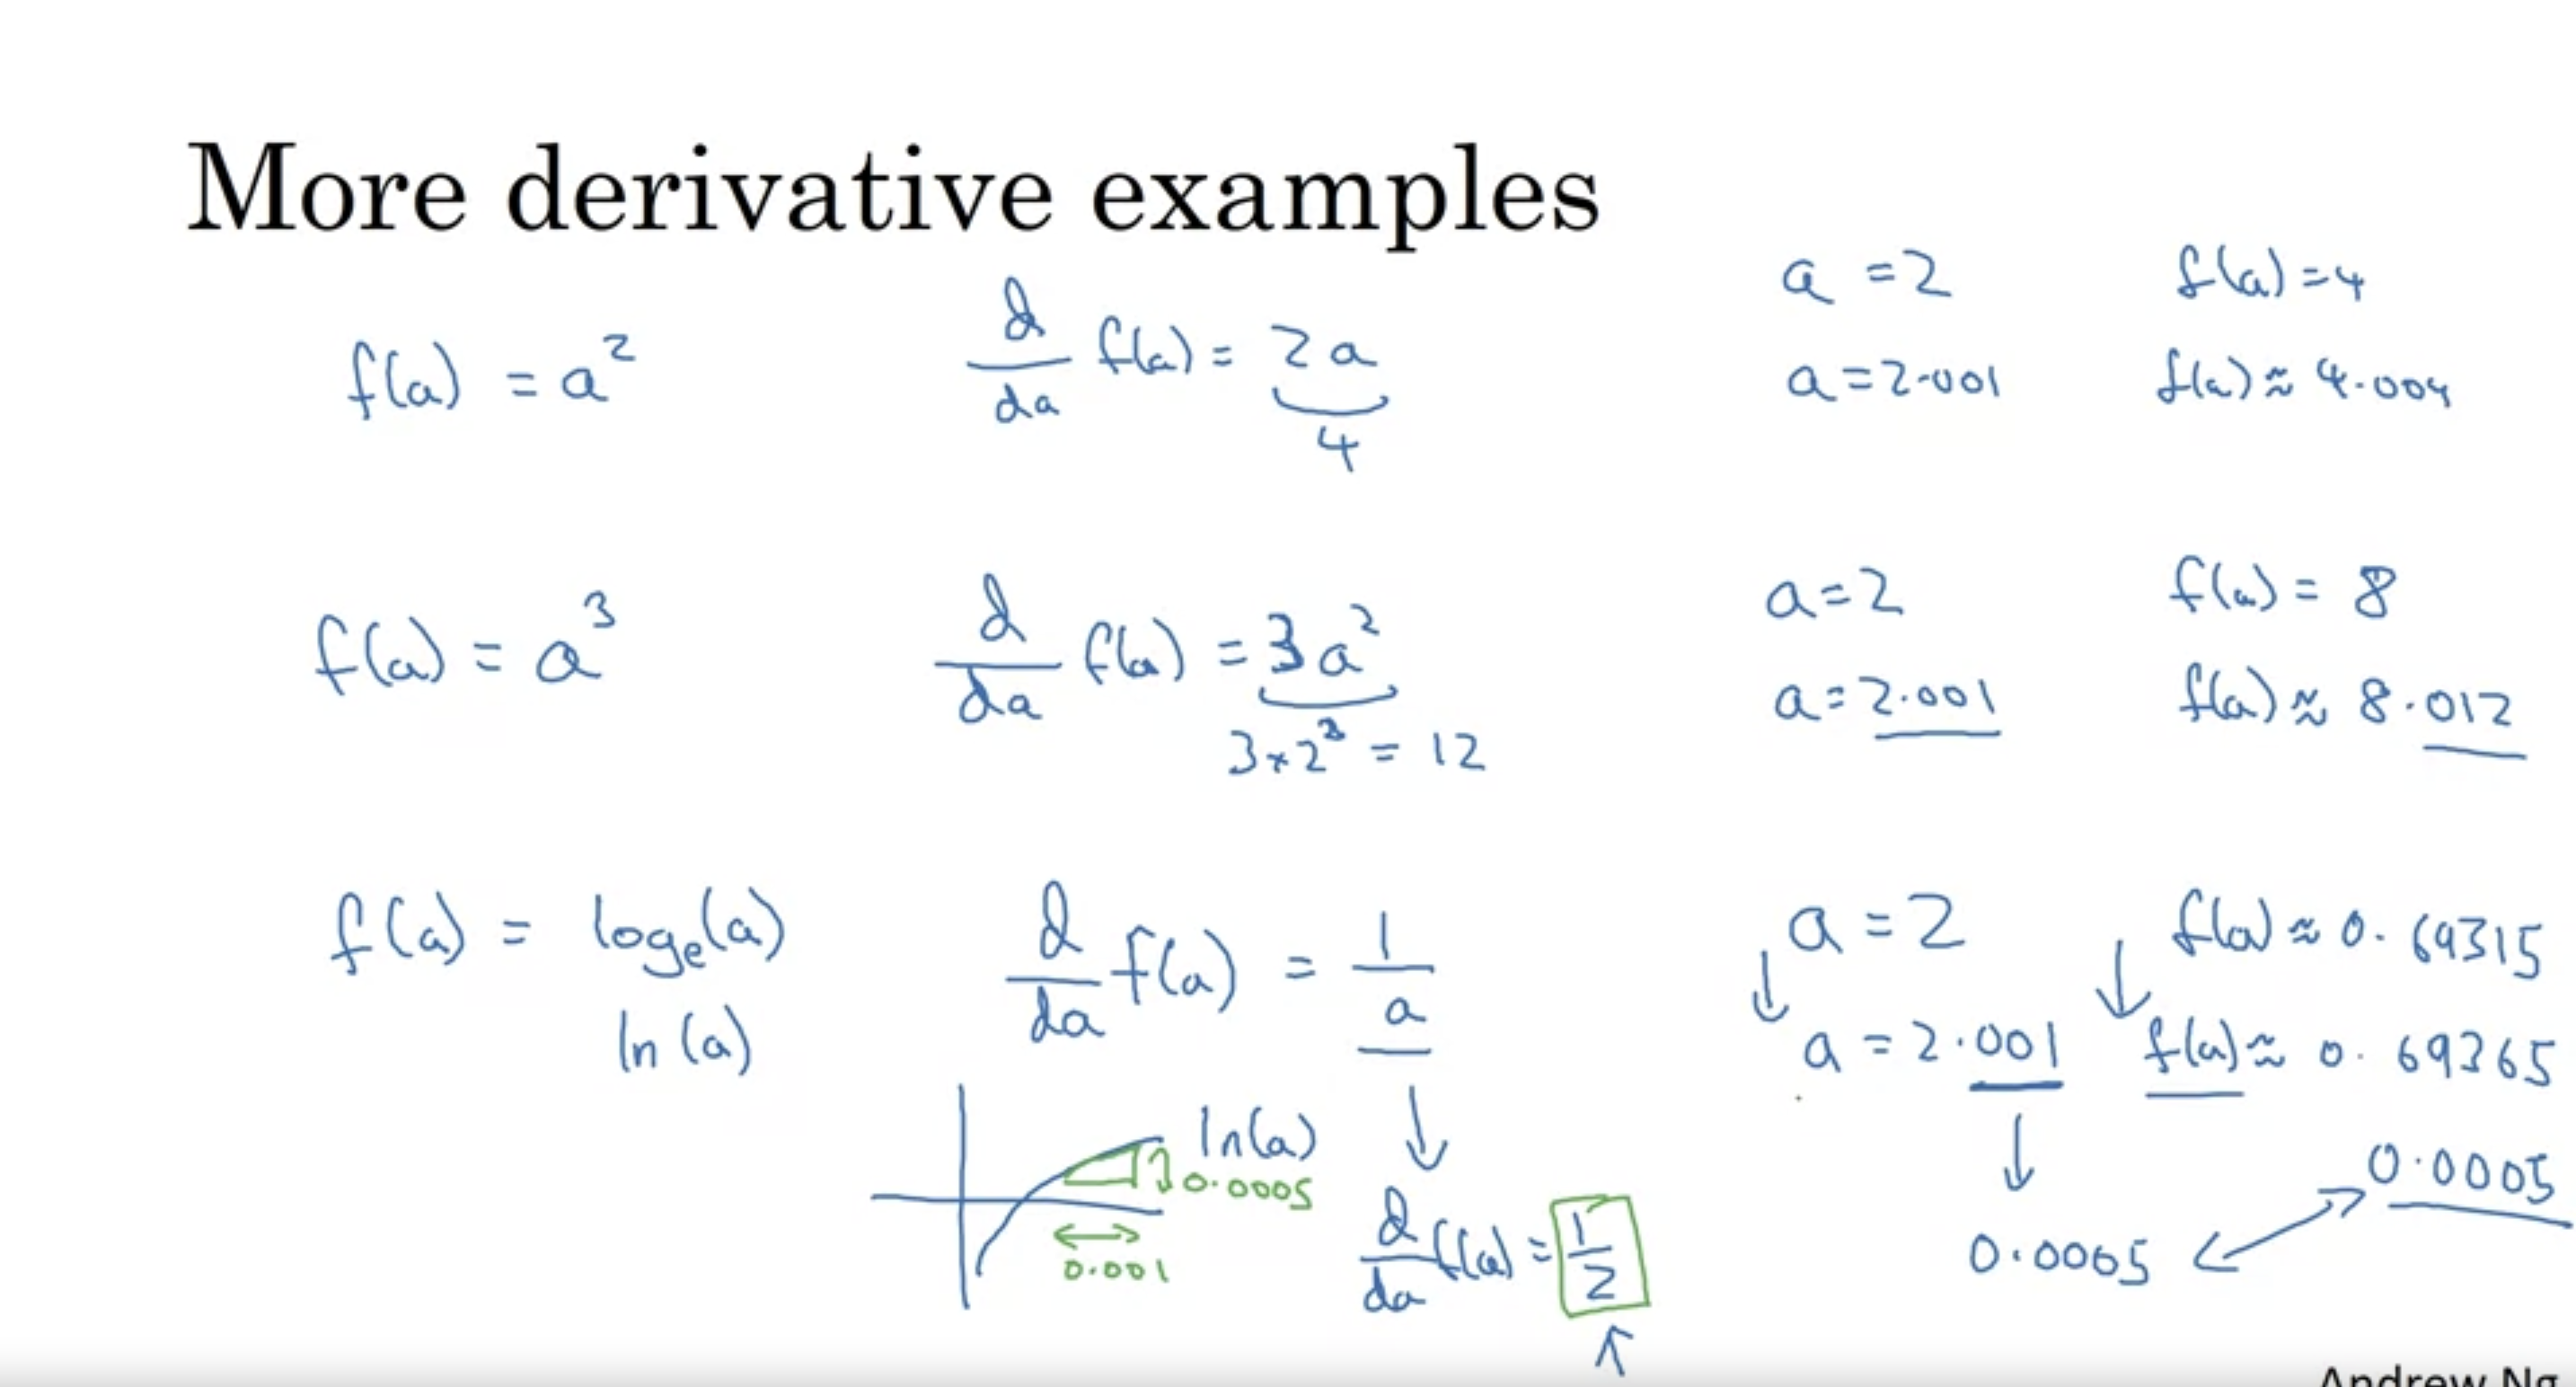 More derivative examples
f(a) = a² d/da f(a) = 2a a = 2 f(a) = 4
4 a = 2.001 f(a) ≈ 4.004
f(a) = a³ d/da f(a) = 3a² a = 2 f(a) = 8
3×2² = 12 a = 2.001 f(a) ≈ 8.012
f(a) = logₑ(a) d/da f(a) = 1/a a = 2 f(a) ≈ 0.69315
ln(a) a = 2.001 f(a) ≈ 0.69365
ln(a) ↓ ↓ 0.0005
0.0005 d/da f(a) = 1/2 0.0005
0.001
Andrew Ng